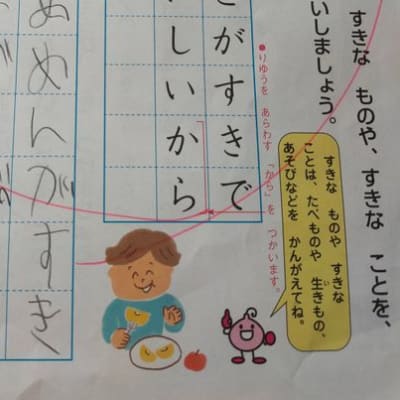 すきな　ものや、すきな　ことを、
いしましょう。
すきな　ものや　すきな
ことは、たべものや　生きもの、
い
あそびなどを　かんがえてね。
●りゆうを　あらわす　「から」を　つかいます。
がすきで
しいから
あめんがすき